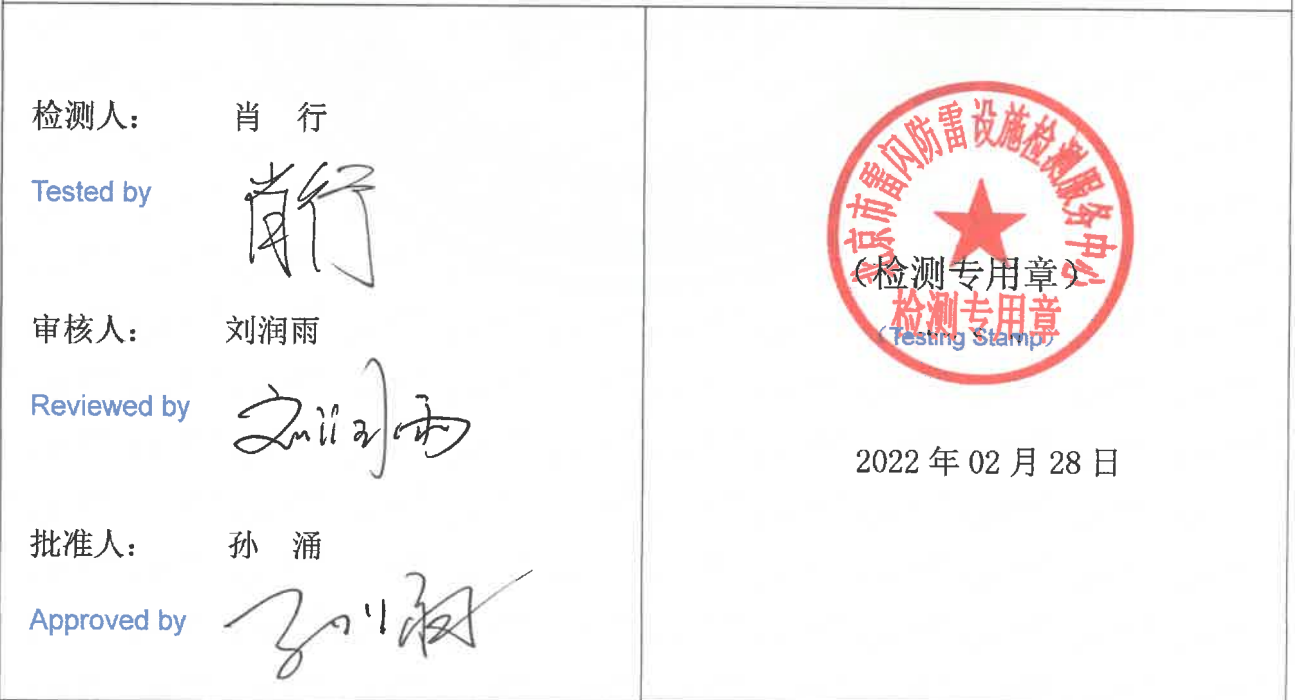 检测人： 肖 行
Tested by
肖行
审核人： 刘润雨
Reviewed by
刘润雨
批准人： 孙 涌
Approved by
孙涌
北京市雷闪防雷设施检测服务中心
（检测专用章）
检测专用章
（Testing Stamp）
2022 年 02 月 28 日